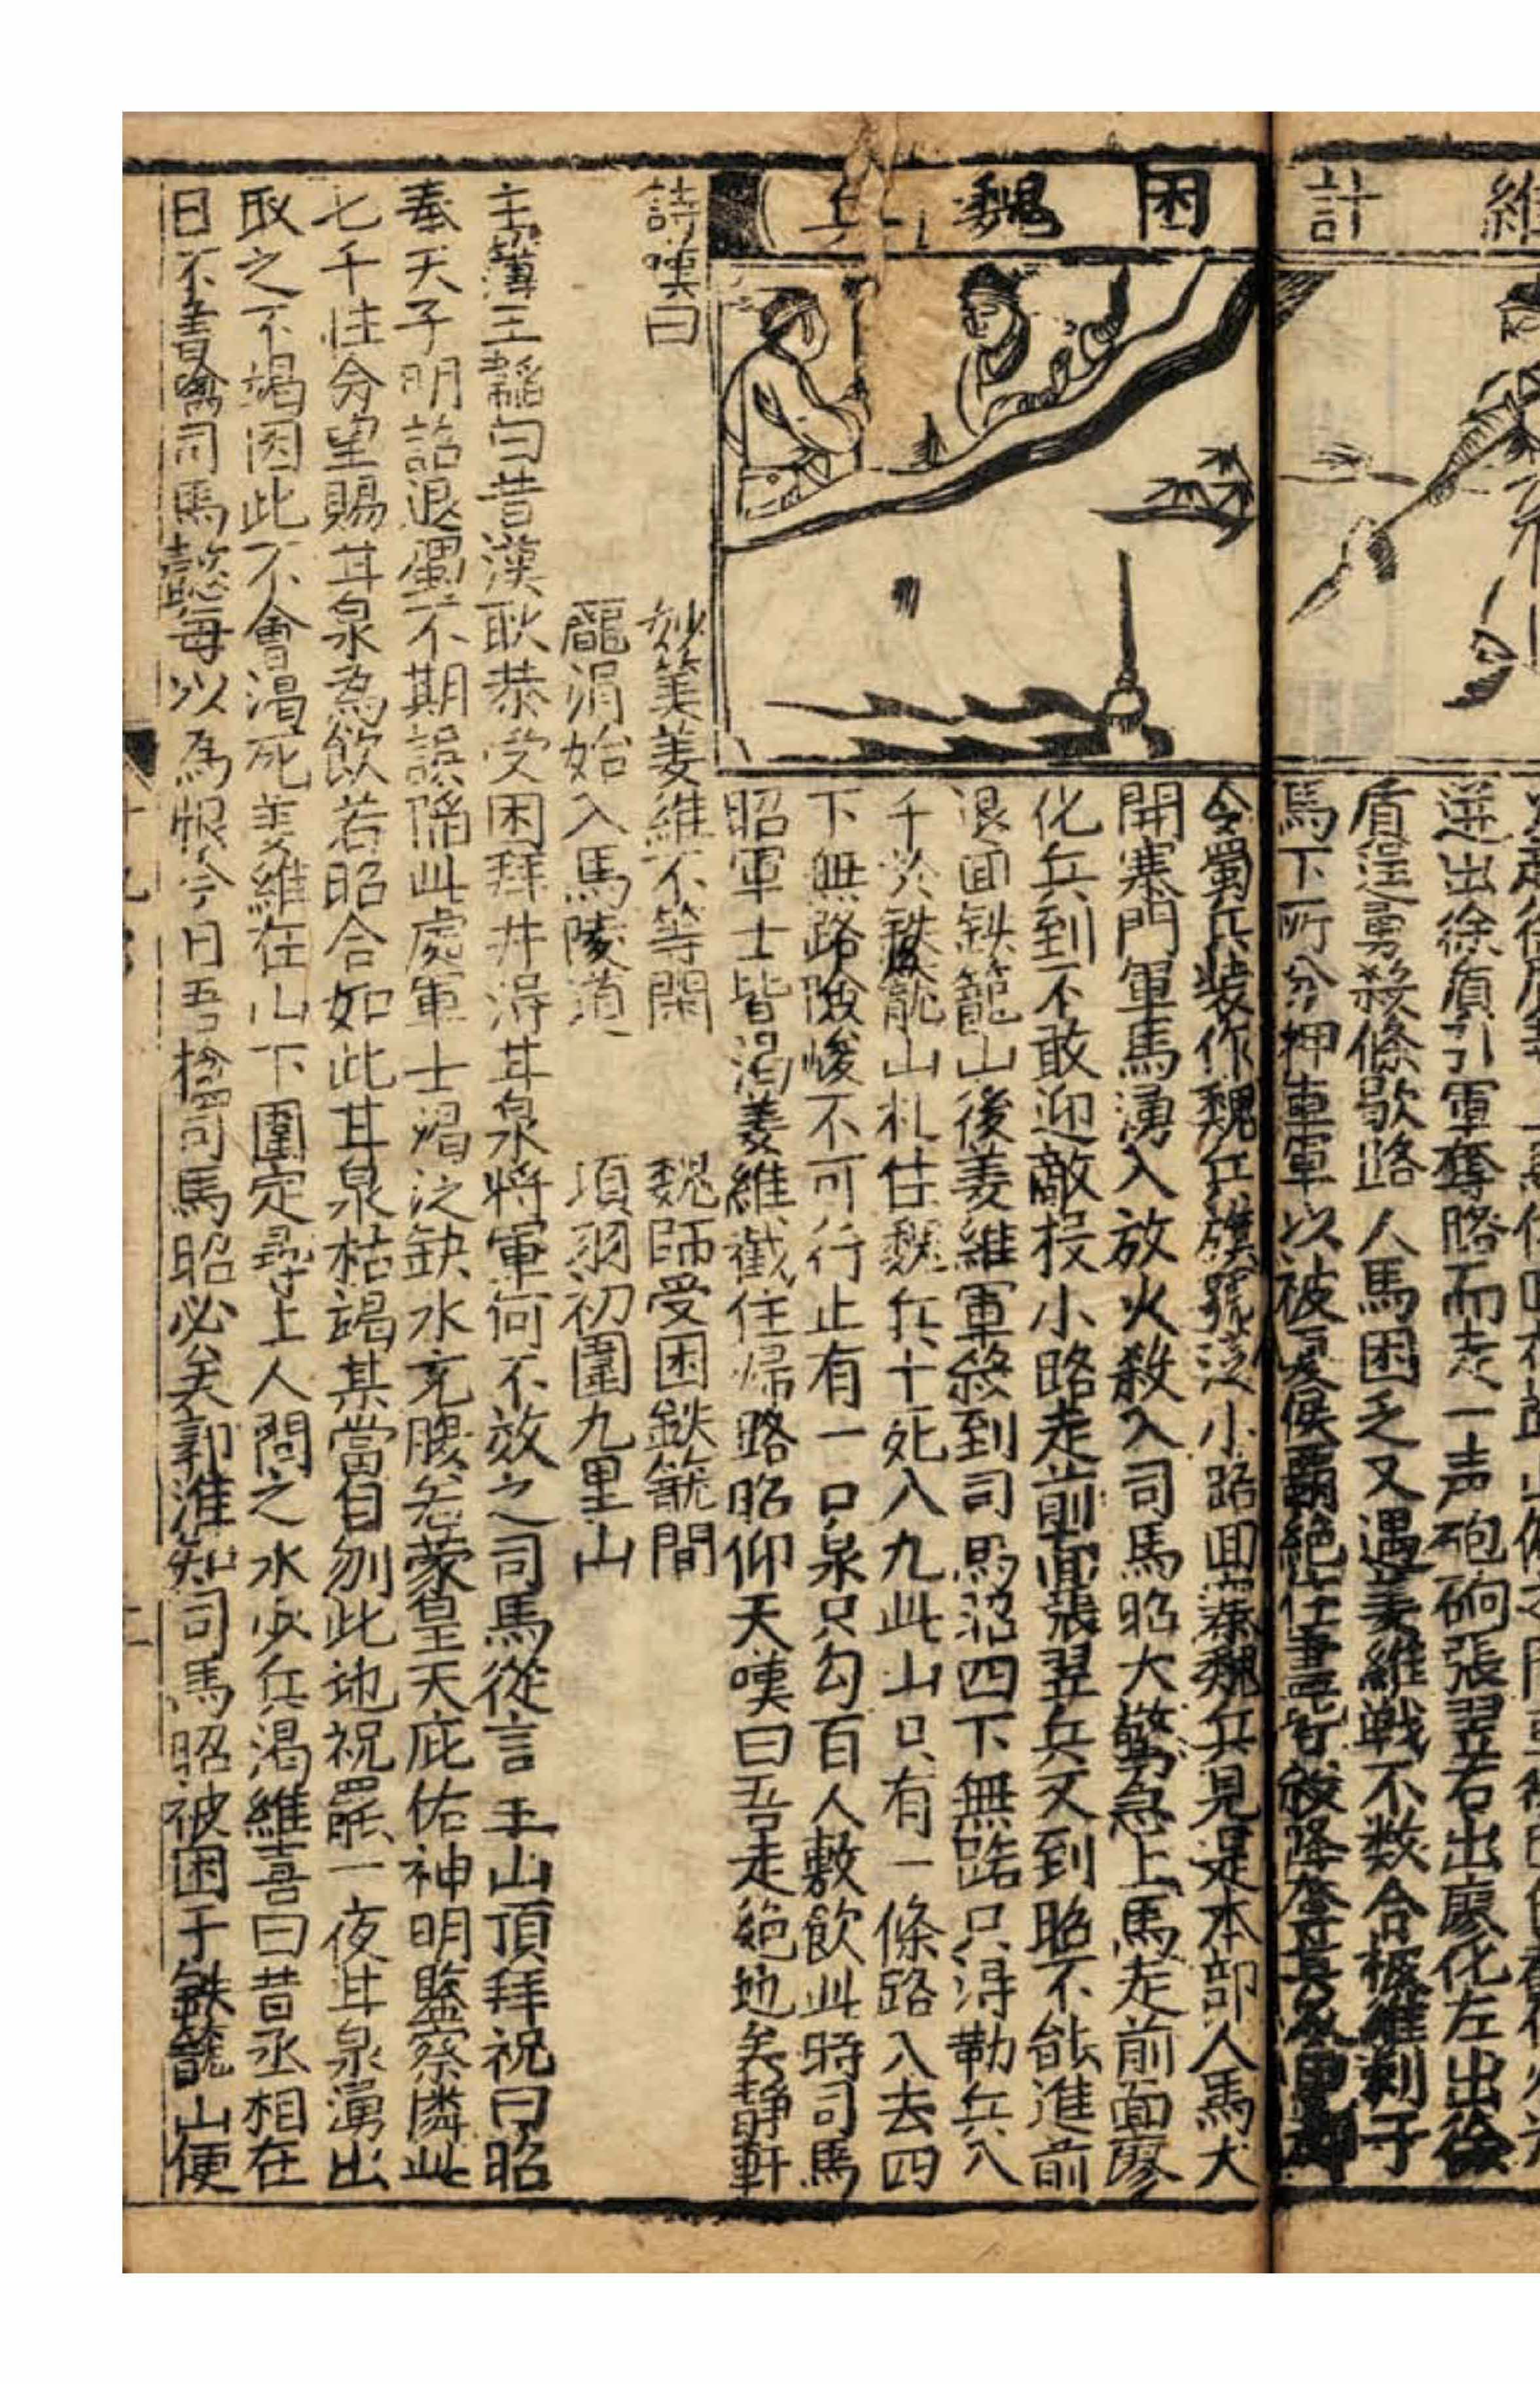 維
計
迸出徐質引軍奪路而走一声砲响張翌右出廖化左出徐
盾逞勇殺條歇路人馬困乏又遇姜維戦不数合被維刺于
馬下所分押車軍以被夏侯覇絶住盡皆投降
困魏兵
令蜀兵裝作魏兵旗號泛小路囬蔡魏兵見是本部人馬大
開寨門軍馬湧入放火殺入司馬昭大驚急上馬走前面廖
化兵到不敢迎敵投小路走前面張翌兵又到昭不能進前
退囬鉄籠山後姜維軍殺到司馬沼四下無路只淂勒兵八
千於鉄籠山札住魏兵十死八九此山只有一條路入去四
下無路險峻不可行止有一口泉只勾百人敷飲此時司馬
昭軍士皆渴姜維截住歸路昭仰天嘆曰吾走絶地矣静軒
詩嘆曰
妙筭姜維不等閑 魏師受困鉄籠間
龐涓始入馬陵道 項羽初圍九里山
主簿王韜曰昔漢耿恭受困拜井淂甘泉將軍何不效之司馬從言上山頂拜祝曰昭
奉天子明詔退蜀不期誤陷此處軍士渴泛缺水充腰若蒙皇天庇佑神明鑒察隣此
七千性命望賜甘泉為飲若昭合如此甘泉枯竭某當自刎此地祝罷一夜甘泉湧出
取之不竭因此不會渴死姜維在山下圍定尋土人問之水少兵渴維喜曰昔丞相在
日不曾擒司馬懿每以為恨今日吾擒司馬昭必矣郭淮知司馬昭被困于鉄籠山便